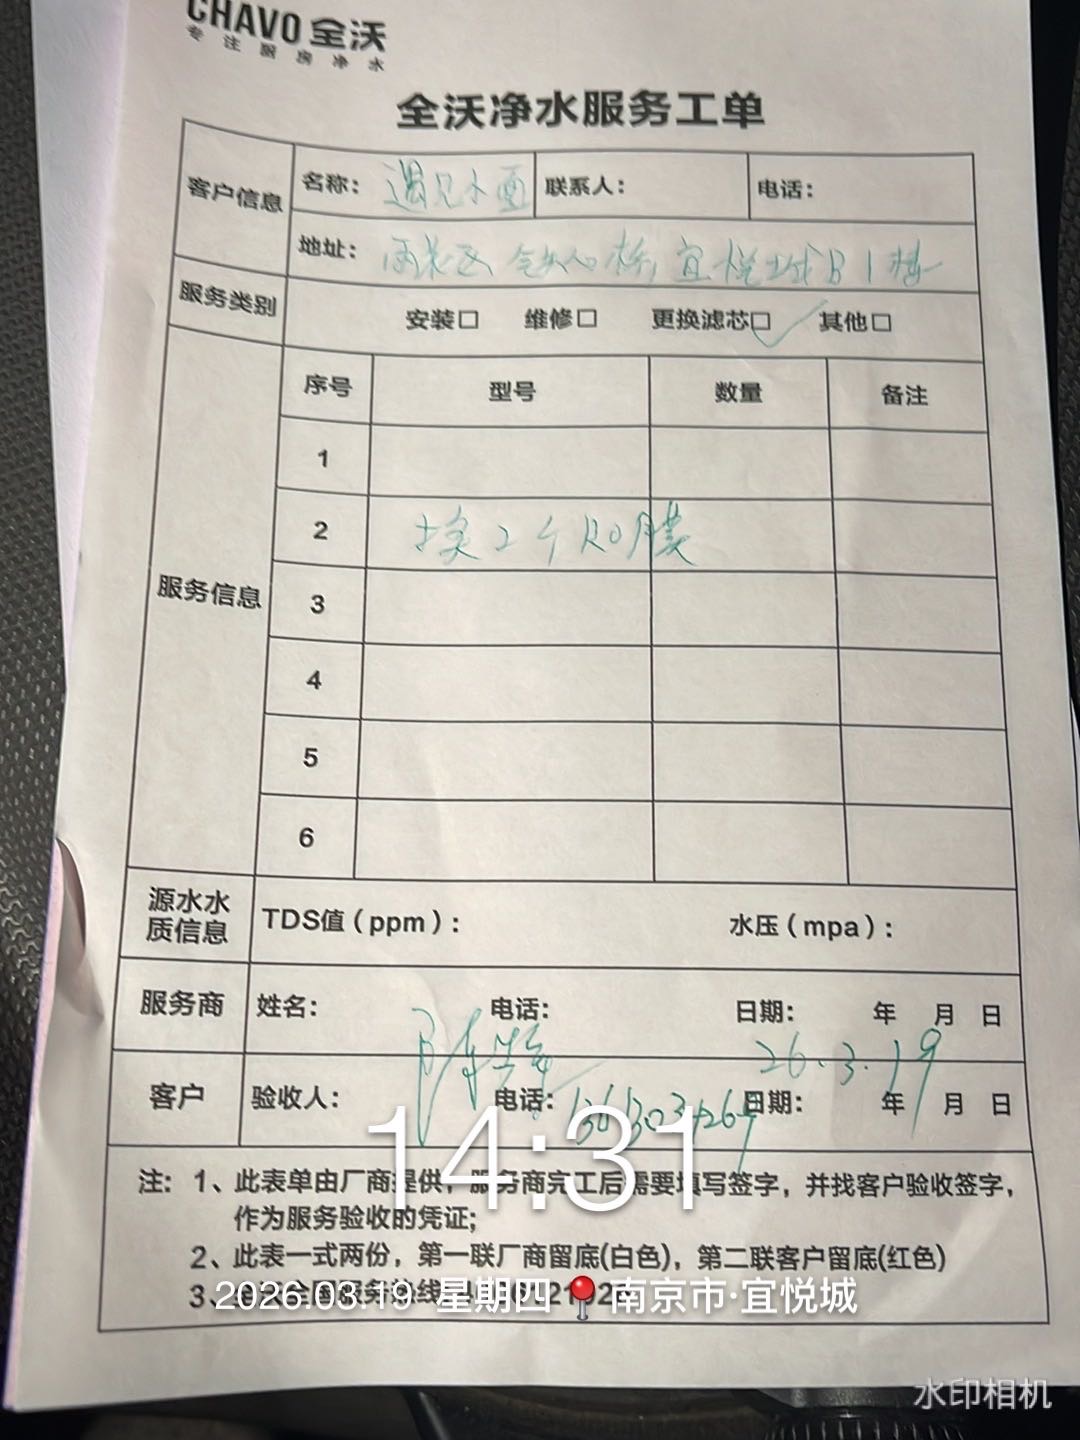 CHAVO 全沃
专注厨房净水
全沃净水服务工单
客户信息 名称: 遇见小面 联系人: 电话:
地址: 雨花区 铁心桥 宜悦城B1楼
服务类别 安装□ 维修□ 更换滤芯□ ✓ 其他□
服务信息 序号 型号 数量 备注
1
2 换2个RO膜
3
4
5
6
源水水质信息 TDS值（ppm）: 水压（mpa）:
服务商 姓名: 电话: 日期: 年 月 日
26.3.19
客户 验收人: 电话: 日期: 年 月 日
14:31
注: 1、此表单由厂商提供，服务商完工后需要填写签字，并找客户验收签字，
作为服务验收的凭证;
2、此表一式两份，第一联厂商留底(白色)，第二联客户留底(红色)
3、全沃全国服务热线
2026.03.19 星期四 📍南京市·宜悦城
水印相机